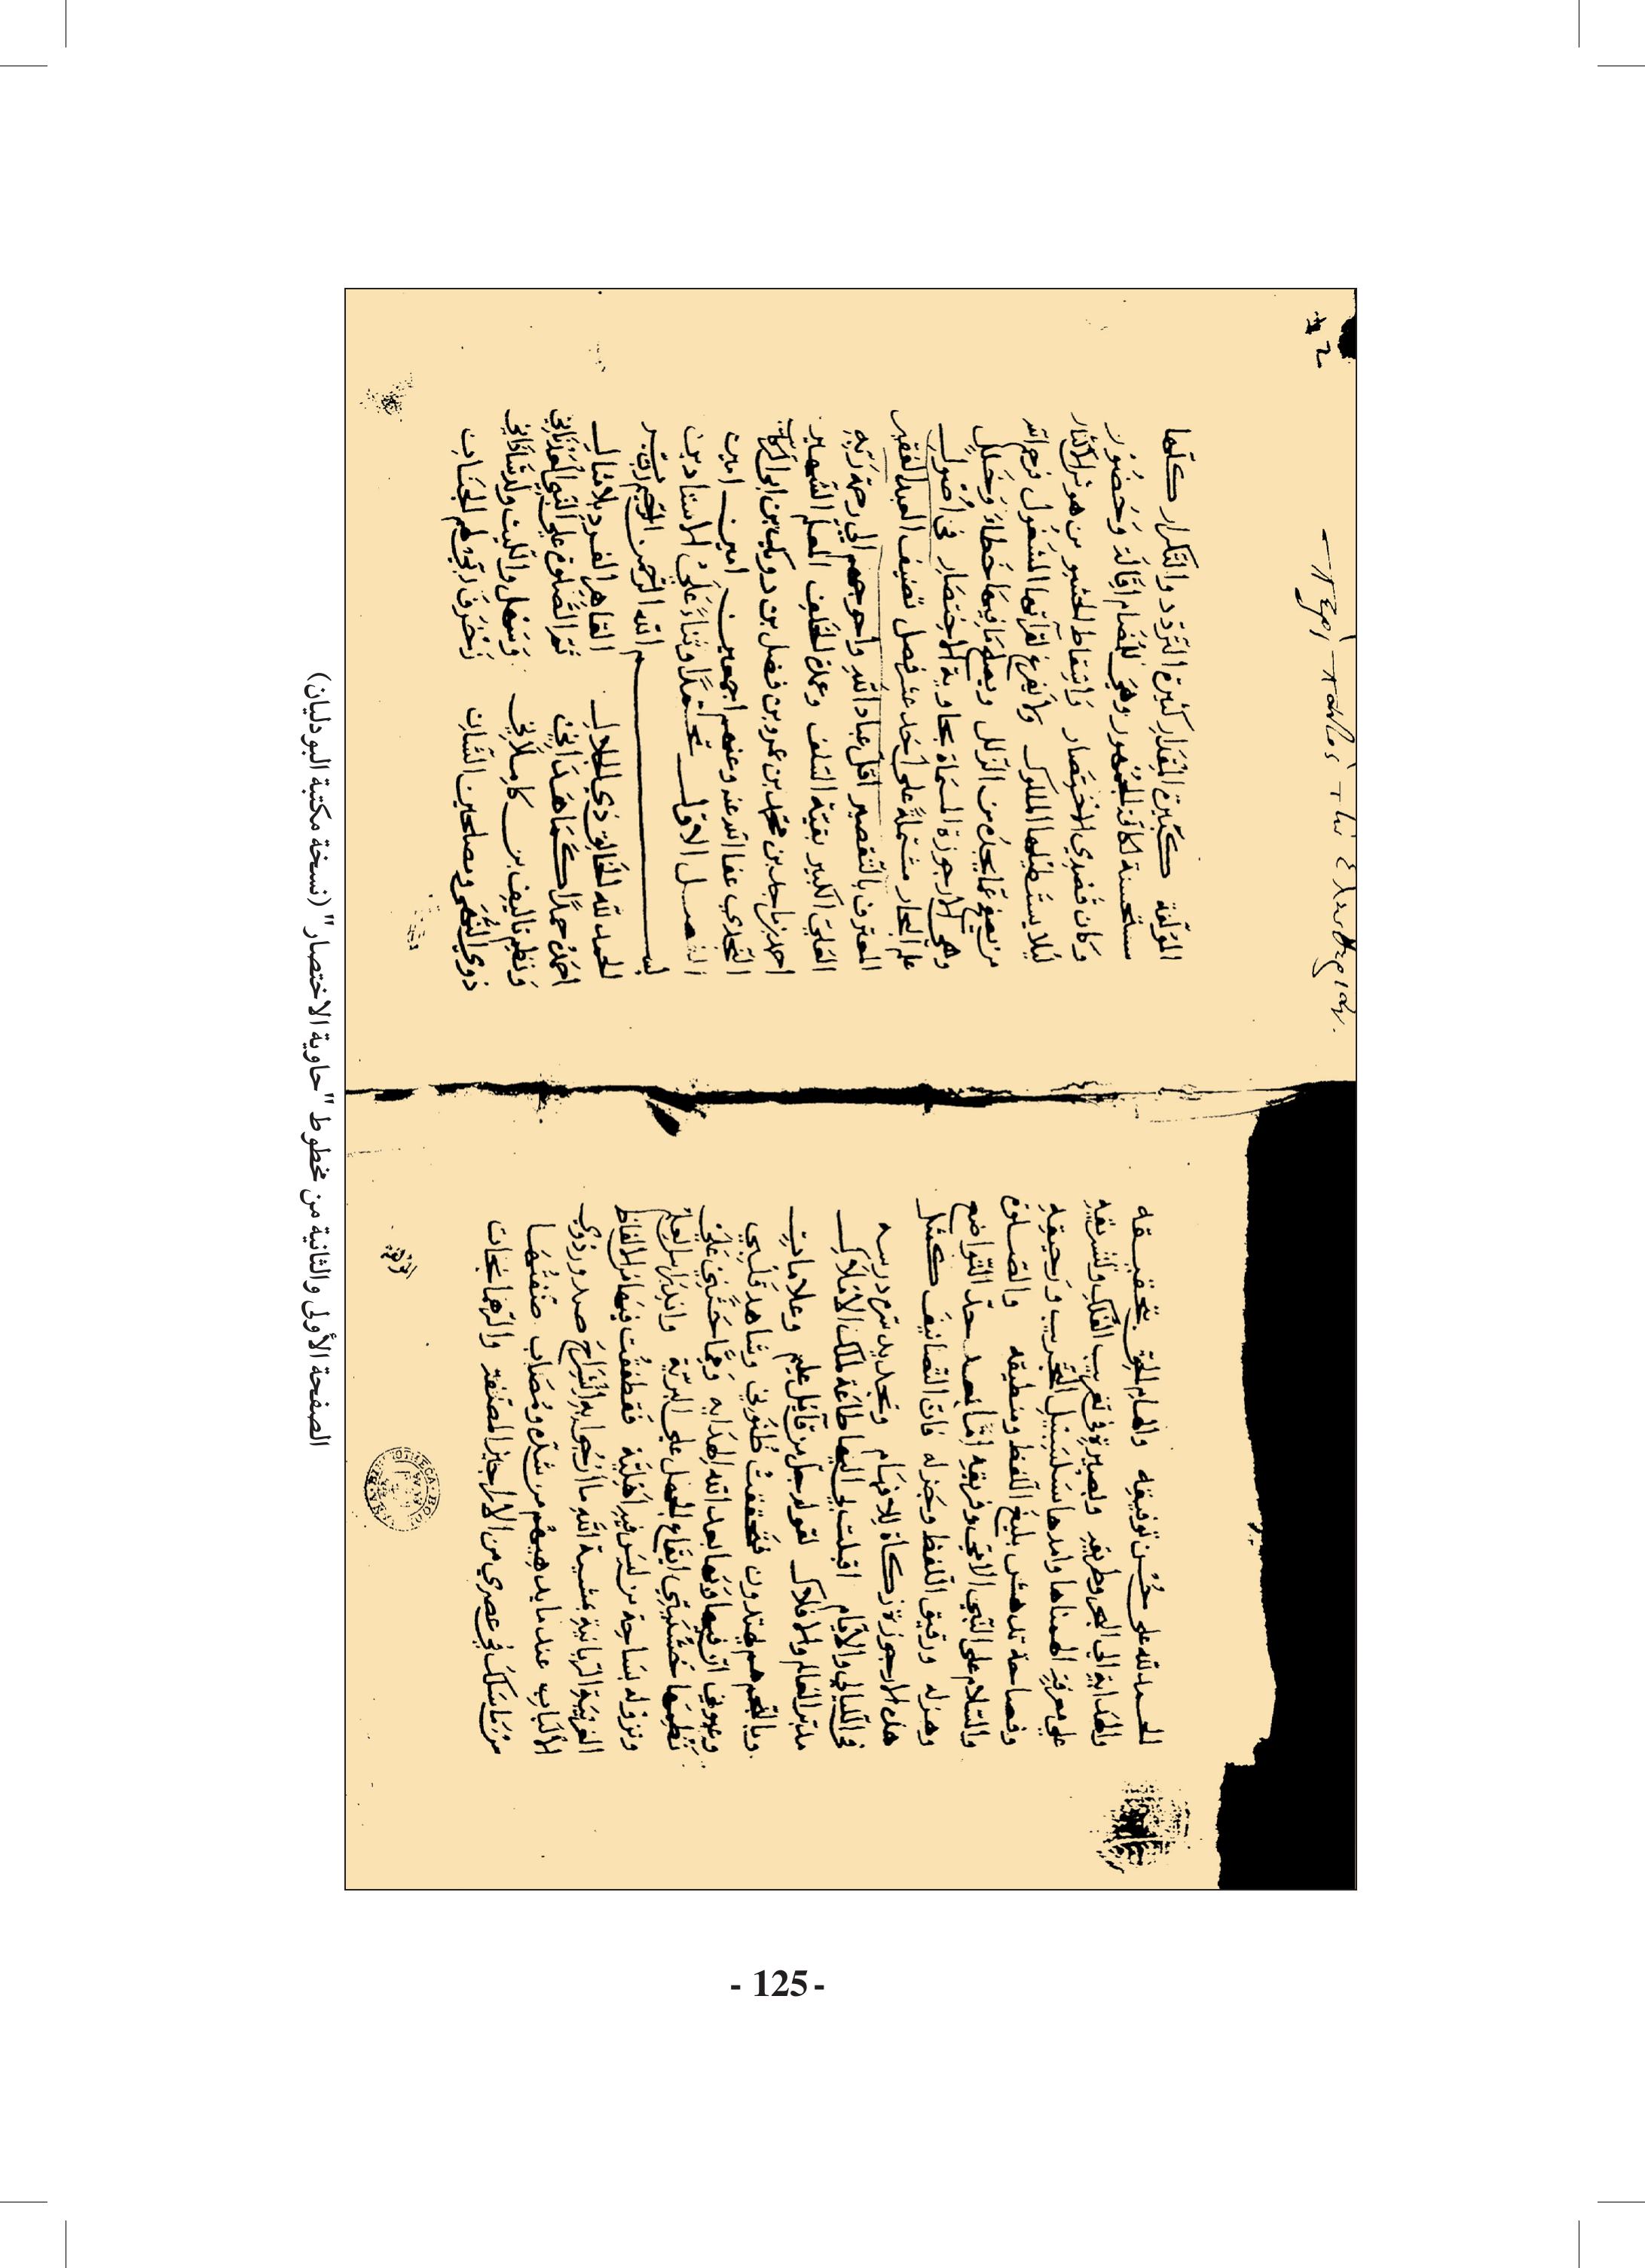 الحمد لله على حسن توفيقه والهام الحق بتحقيقه
والهداية الى البحر وطريقه وبصيرة في تغريب الفلك وتشريقه
على معرفة الهمناها وامدها سلسبيل التجريب ورحيقه
وفصاحة تدهش بليغ اللفظ ومنطيقه والصلوة
والسلام على النبي الامي وفريقه اما بعد حد التواضع
وهزله ورقيق اللفظ وجزله فان التصانيف كمثل
هذه الارجوزة زكاة للافهام وتحديد درسه
في الليالي والأيام اقبلت الى اليها طاعة لملك الاملاك
مدبر العالم والافلاك لقوله جل من قائل عليم وعلامات
وبالنجم هم يهتدون فتحققت ظنوني وشاهد قلبي
وعيوني ان فيها ونها بعد الله الهداية ومما حثني على
نظمها خشيتي ايقاع الجهل على البرية واندراس العلم
ونزوله بساحة من ليس فيه اهلية فقطفت فيها من الفاظ
العربية الربانية بمشية الله ما ارجوا به انشراح صدور ذوي
الألباب عند ما يدهيهم من شدة ومصاب صنفتها
من ما سلك في عصري من الاراجيز المصنفة والرهمانجات
المؤلفة كبيرة المقدار كثيرة التردد والتكرار كلها
مستحسنة لكافة الجمهور وهي للخصام اقالة وحضور
وكان قصدي الاختصار واسقاط الحشو من هو الاكثار
ليلا يستطيلها الملوك ولا يفرغ لقرآتها المشغول فرحم الله
من يصفح عما يجد من الزلل ويصلح ما فيها خطاء وخلل
وهي الارجوزة المسماة بحاوية الاختصار في اصول
علم البحار مشتملة على احد عشر فصل تصنيف العبد الفقير
المعترف بالتقصير اقل عباد الله واحوجهم الى رحمة ربه
العلي الكبير بقية السلف وعمدة الخلف المعلم الشهير
احمد بن ماجد بن محمد بن عمرو بن فضل بن دويك بن ابي الركايب
النجدي عفا الله عنه وعنهم اجمعين امين امين
الفصل الاول حمدا وثناء على الاستادين
بسم الله الرحمن الرحيم
الحمد لله الخالق ذي الجلال القاهر الفرد بلا مثال
احمده حمدا كما هداني ثم الصلوة على النبي العدناني
ونظم تاليف بن كاملاني وسهل والليث ولد شاذاني
ذوي النهى ومصلحين الشان زخرف ارتجي لهم الجنان
الصفحة الأولى والثانية من مخطوط "حاوية الاختصار" (نسخة مكتبة البودليان)
- 125 -